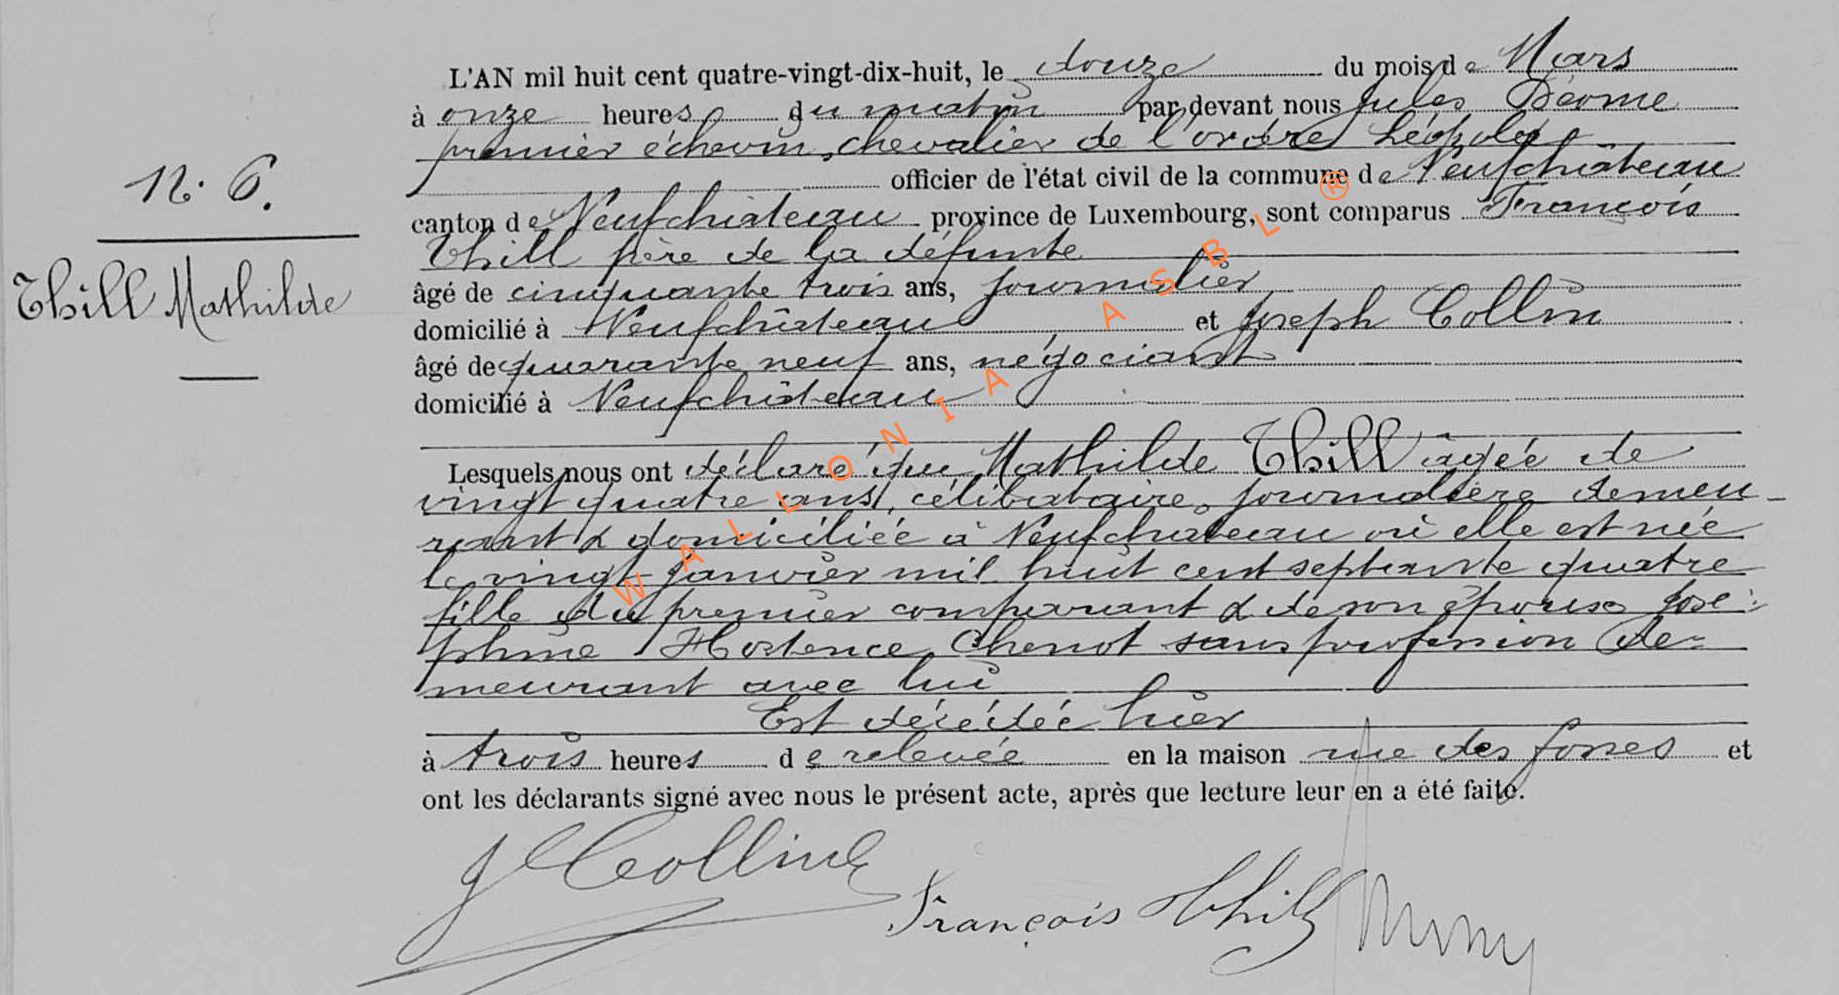 L'AN mil huit cent quatre-vingt-dix-huit, le douze du mois de Mars
à onze heures du matin par devant nous Jules
premier échevin, chevalier de l'ordre Léopold
officier de l'état civil de la commune de Neufchâteau
canton de Neufchâteau province de Luxembourg, sont comparus François
Thill père de la défunte
âgé de cinquante trois ans, journalier
domicilié à Neufchâteau et Joseph Collin
âgé de quarante neuf ans, négociant
domicilié à Neufchâteau
N. 6.
Thill Mathilde
Lesquels nous ont déclaré que Mathilde Thill âgée de
vingt quatre ans, célibataire, journalière demeu-
rant & domiciliée à Neufchâteau où elle est née
le vingt janvier mil huit cent septante quatre
fille du premier comparant & de son épouse José:
phine Hortence Chenot sans profession de-
meurant avec lui
Est décédée hier
à trois heures de relevée en la maison rue des fosses et
ont les déclarants signé avec nous le présent acte, après que lecture leur en a été faite.
J Collin
François Thill
WALLONIA ASBL ®